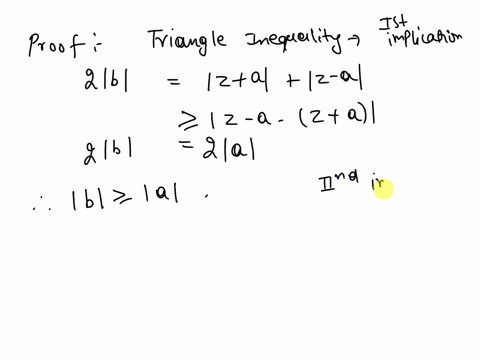 Proof :- Triangle Inequality → Ist implication
2|b| = |z+a| + |z-a|
≥ |z-a - (z+a)|
2|b| = 2|a|
∴ |b| ≥ |a| .
IInd